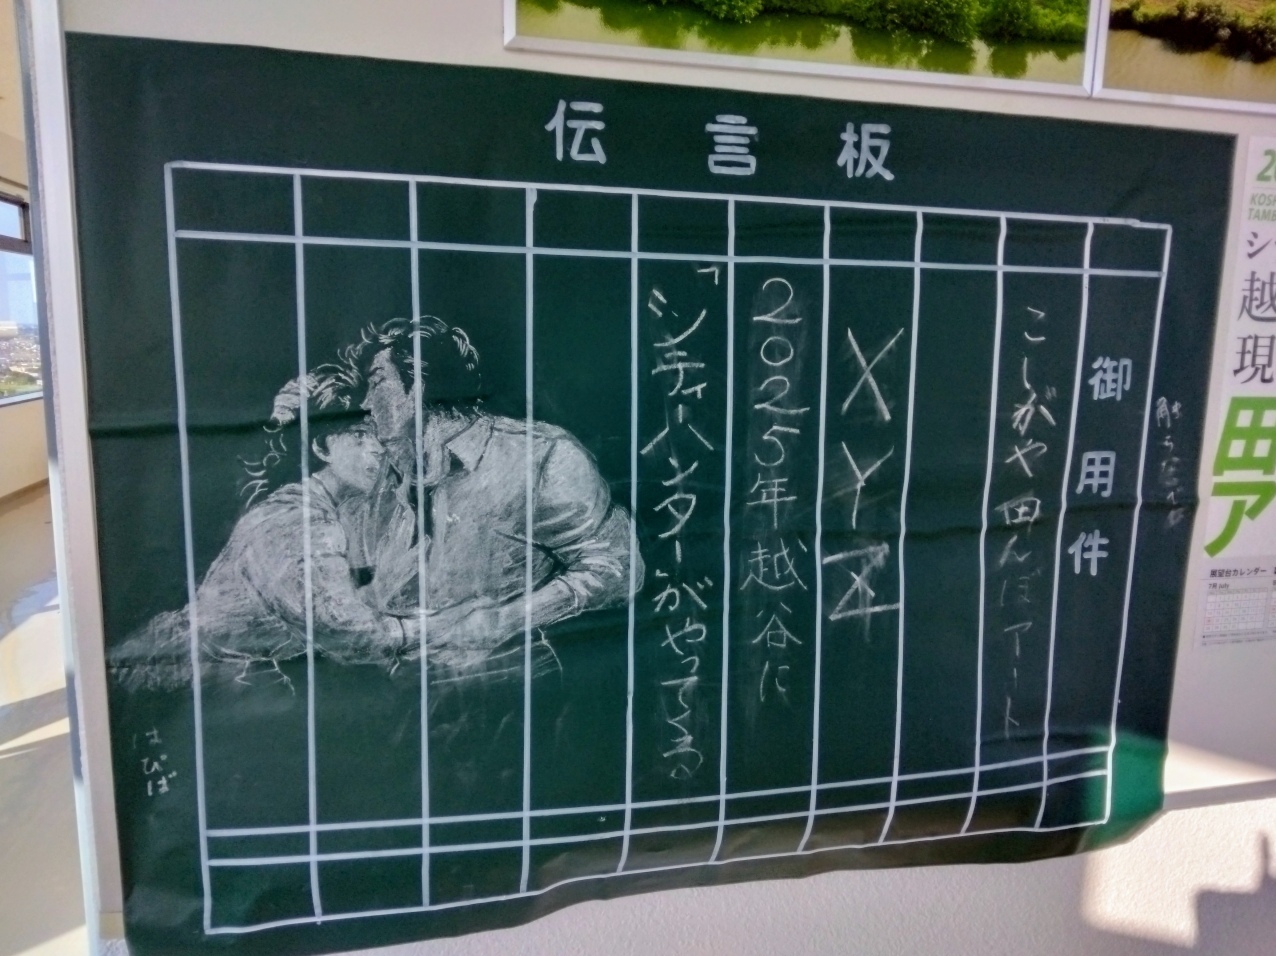 伝言板
御用件
こしがや田んぼアート
XYZ
2025年越谷に
「シティーハンターがやってくる
はぴば
シ
越
現
田
ア
展望台カレンダー
7月 July